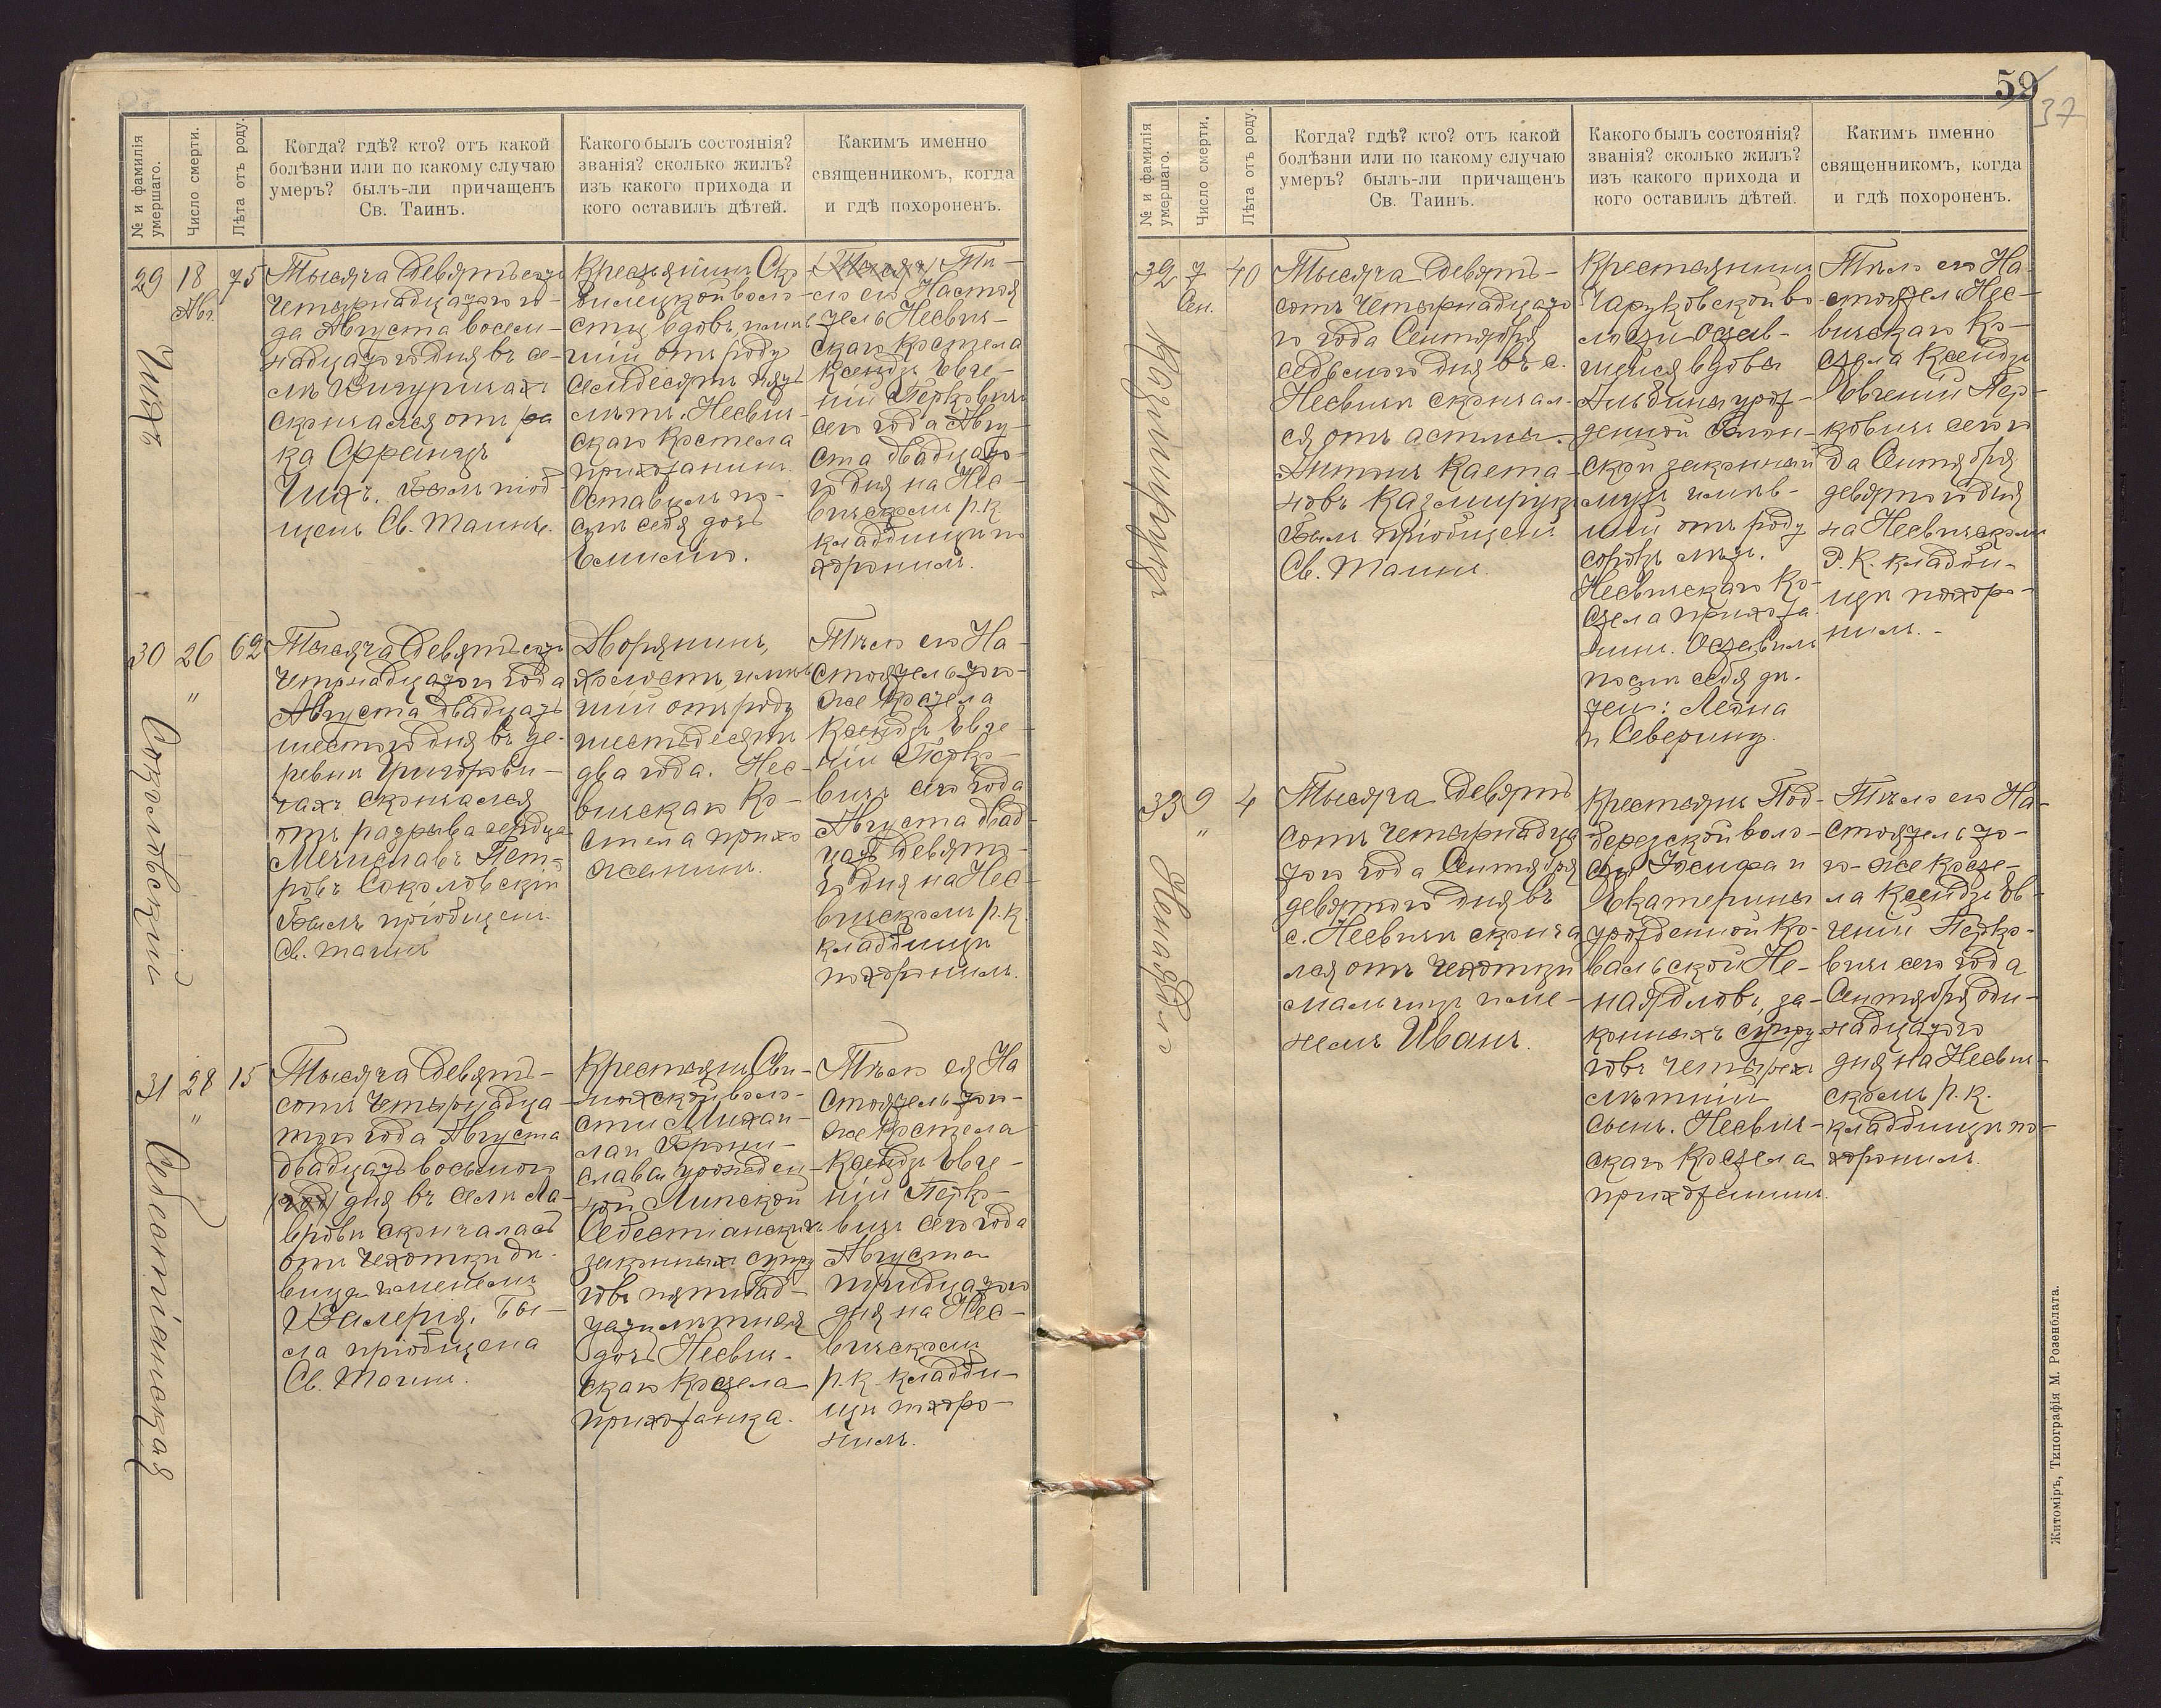 № и фамилія умершаго.
Число смерти.
Лѣта отъ роду.
Когда? гдѣ? кто? отъ какой
болѣзни или по какому случаю
умеръ? былъ-ли причащенъ
Св. Таинъ.
Какого былъ состоянія?
званія? сколько жилъ?
изъ какого прихода и
кого оставилъ дѣтей.
Какимъ именно
священникомъ, когда
и гдѣ похороненъ.
29
18
Авг.
75
Чихъ
Тысяча девятьсотъ
четырнадцатого го-
да Августа восем-
надцатого дня въ се-
лѣ
скончался отъ ра
ка Францъ
Чихъ. Былъ пріоб-
щенъ Св. Таинъ.
Крестьянинъ
волο-
сти, вдовъ, имѣв
шій отъ роду
семдесятъ пять
лѣтъ. Несвич-
скаго Костела
прихожанинъ.
Оставилъ по-
слѣ себя дочь
Емилію.
Тѣ-
ло его Настоя
тель Несвич-
скаго Костела
Ксендзъ Евге-
ній Перковичъ
сего года Авгу-
ста двадцато-
го дня на Нес-
вичскомъ р.к.
кладбищѣ по
хоронилъ.
30
26
"
62
Соколовскій
Тысяча девятьсотъ
четырнадцатого года
Августа двадцать
шестого дня въ де-
ревни Григорови-
чахъ скончался
отъ разрыва сердца
Мечиславъ Пет-
ровъ Соколовскій
Былъ пріобщенъ
Св. Таинъ
Дворянинъ,
холостъ, имѣв
шій отъ роду
шестьдесятъ
два года. Нес-
вичскаго Ко-
стела прихо
жанинъ.
Тѣло его На-
стоятель того-
же Костела
Ксендзъ Евге-
ній Перко-
вичъ сего года
Августа двад-
цать девято-
го дня на Нес-
вичскомъ р.к.
кладбищѣ
похоронилъ.
31
28
"
15
Себестіанская
Тысяча девять-
сотъ четырнадца-
того года Августа
двадцать восьмого
дня въ селѣ Ла-
вровѣ скончалась
отъ чехотки дѣ-
вица именемъ
Валерія. Бы-
ла пріобщена
Св. Таинъ.
Крестьянъ
воло-
сти Михаи-
ла и Брони-
славы урожден-
ной Липской
Себестіанскихъ
законныхъ супру
говъ пятнад-
цатилѣтняя
дочь Несвич-
скаго Костела
прихожанка.
Тѣло ея На
стоятель того-
же Костела
Ксендзъ Евге-
ній Перко-
вичъ сего года
Августа
тридцатого
дня на Нес-
вичскомъ
р.к. кладби-
щѣ похоро-
нилъ.
59
37
№ и фамилія умершаго.
Число смерти.
Лѣта отъ роду.
Когда? гдѣ? кто? отъ какой
болѣзни или по какому случаю
умеръ? былъ-ли причащенъ
Св. Таинъ.
Какого былъ состоянія?
званія? сколько жилъ?
изъ какого прихода и
кого оставилъ дѣтей.
Какимъ именно
священникомъ, когда
и гдѣ похороненъ.
32
7
Сен.
40
Казмирукъ
Тысяча девять-
сотъ четырнадцато
го года Сентября
седьмого дня въ с.
Несвичи скончал-
ся отъ астмы
Антонъ Каета-
новъ Казмирукъ
Былъ пріобщенъ
Св. Таинъ.
Крестьянинъ
Чаруковской во-
лости остав-
шейся вдовы
Альбины урож-
денной
законный
мужъ имѣв-
шій отъ роду
сорокъ лѣтъ.
Несвичскаго Ко-
стела прихожа
нинъ. Оставилъ
послѣ себя дѣ-
тей: Леона
и Северину.
Тѣло его На-
стоятель Нес-
вичскаго Ко-
стела Ксендзъ
Евгеній Пер-
ковичъ сего го
да Сентября
девятого дня
на Несвичскомъ
Р.К. кладби-
щѣ похоро-
нилъ.
33
9
"
4
Тысяча девять
сотъ четырнадца
того года Сентября
девятого дня въ
с. Несвичи сконча
лся отъ чехотки
мальчикъ име-
немъ Иванъ.
Крестьянъ Под-
березской воло-
сти Іосифа и
Екатерины
урожденной Ко-
вальской
за-
конныхъ супру
говъ четырех
лѣтній
сынъ. Несвич-
скаго Костела
прихожанинъ.
Тѣло его На-
стоятель то-
го-же Косте-
ла Ксендзъ Ев-
геній Перко-
вичъ сего года
Сентября оди-
надцатого
дня на Несвич-
скомъ р.к.
кладбищѣ по-
хоронилъ.
Житоміръ, Типографія М. Розенблата.